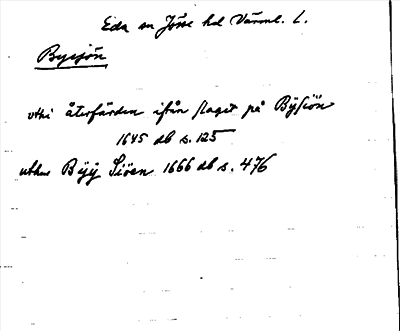 Eda sn Jösse hd Värml. L.
Bysjön
uthi återfärden ifrån slaget på Bÿsiön
1645 db s. 125
uthur Bÿÿ Siöen 1666 db s. 476